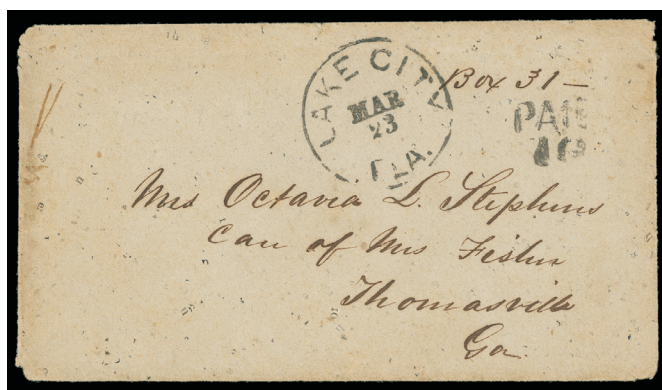 LAKE CITY
MAR
23
FLA.
Box 31 —
PAID
10
Mrs Octavia L. Stephens
Care of Mrs Fisher
Thomasville
Ga